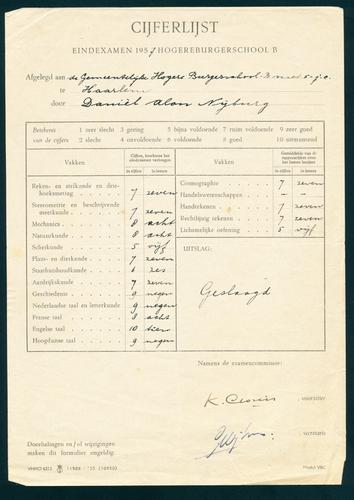 CIJFERLIJST
EINDEXAMEN 1957 HOGEREBURGERSCHOOL B
Afgelegd aan de Gemeentelijke Hogere Burgerschool-B met 5-j.c.
te Haarlem
door Daniël Alon Nijburg
Betekenis van de cijfers
1 zeer slecht 3 gering 5 bijna voldoende 7 ruim voldoende 9 zeer goed
2 slecht 4 onvoldoende 6 voldoende 8 goed 10 uitmuntend
Vakken
in cijfers in letters
Reken- en stelkunde en driehoeksmeting 7 zeven
Stereometrie en beschrijvende meetkunde 7 zeven
Mechanica 8 acht
Natuurkunde 8 acht
Scheikunde 5 vijf
Plant- en dierkunde 7 zeven
Staatshuishoudkunde 6 zes
Aardrijkskunde 7 zeven
Geschiedenis 9 negen
Nederlandse taal en letterkunde 9 negen
Franse taal 8 acht
Engelse taal 10 tien
Hoogduitse taal 9 negen
Vakken
in cijfers in letters
Cosmographie 7 zeven
Handelswetenschappen - -
Handtekenen 7 zeven
Rechtlijnig tekenen 7 zeven
Lichamelijke oefening 5 vijf
UITSLAG:
Geslaagd
Namens de examencommissie:
voorzitter
secretaris
Doorhalingen en/of wijzigingen
maken dit formulier ongeldig.